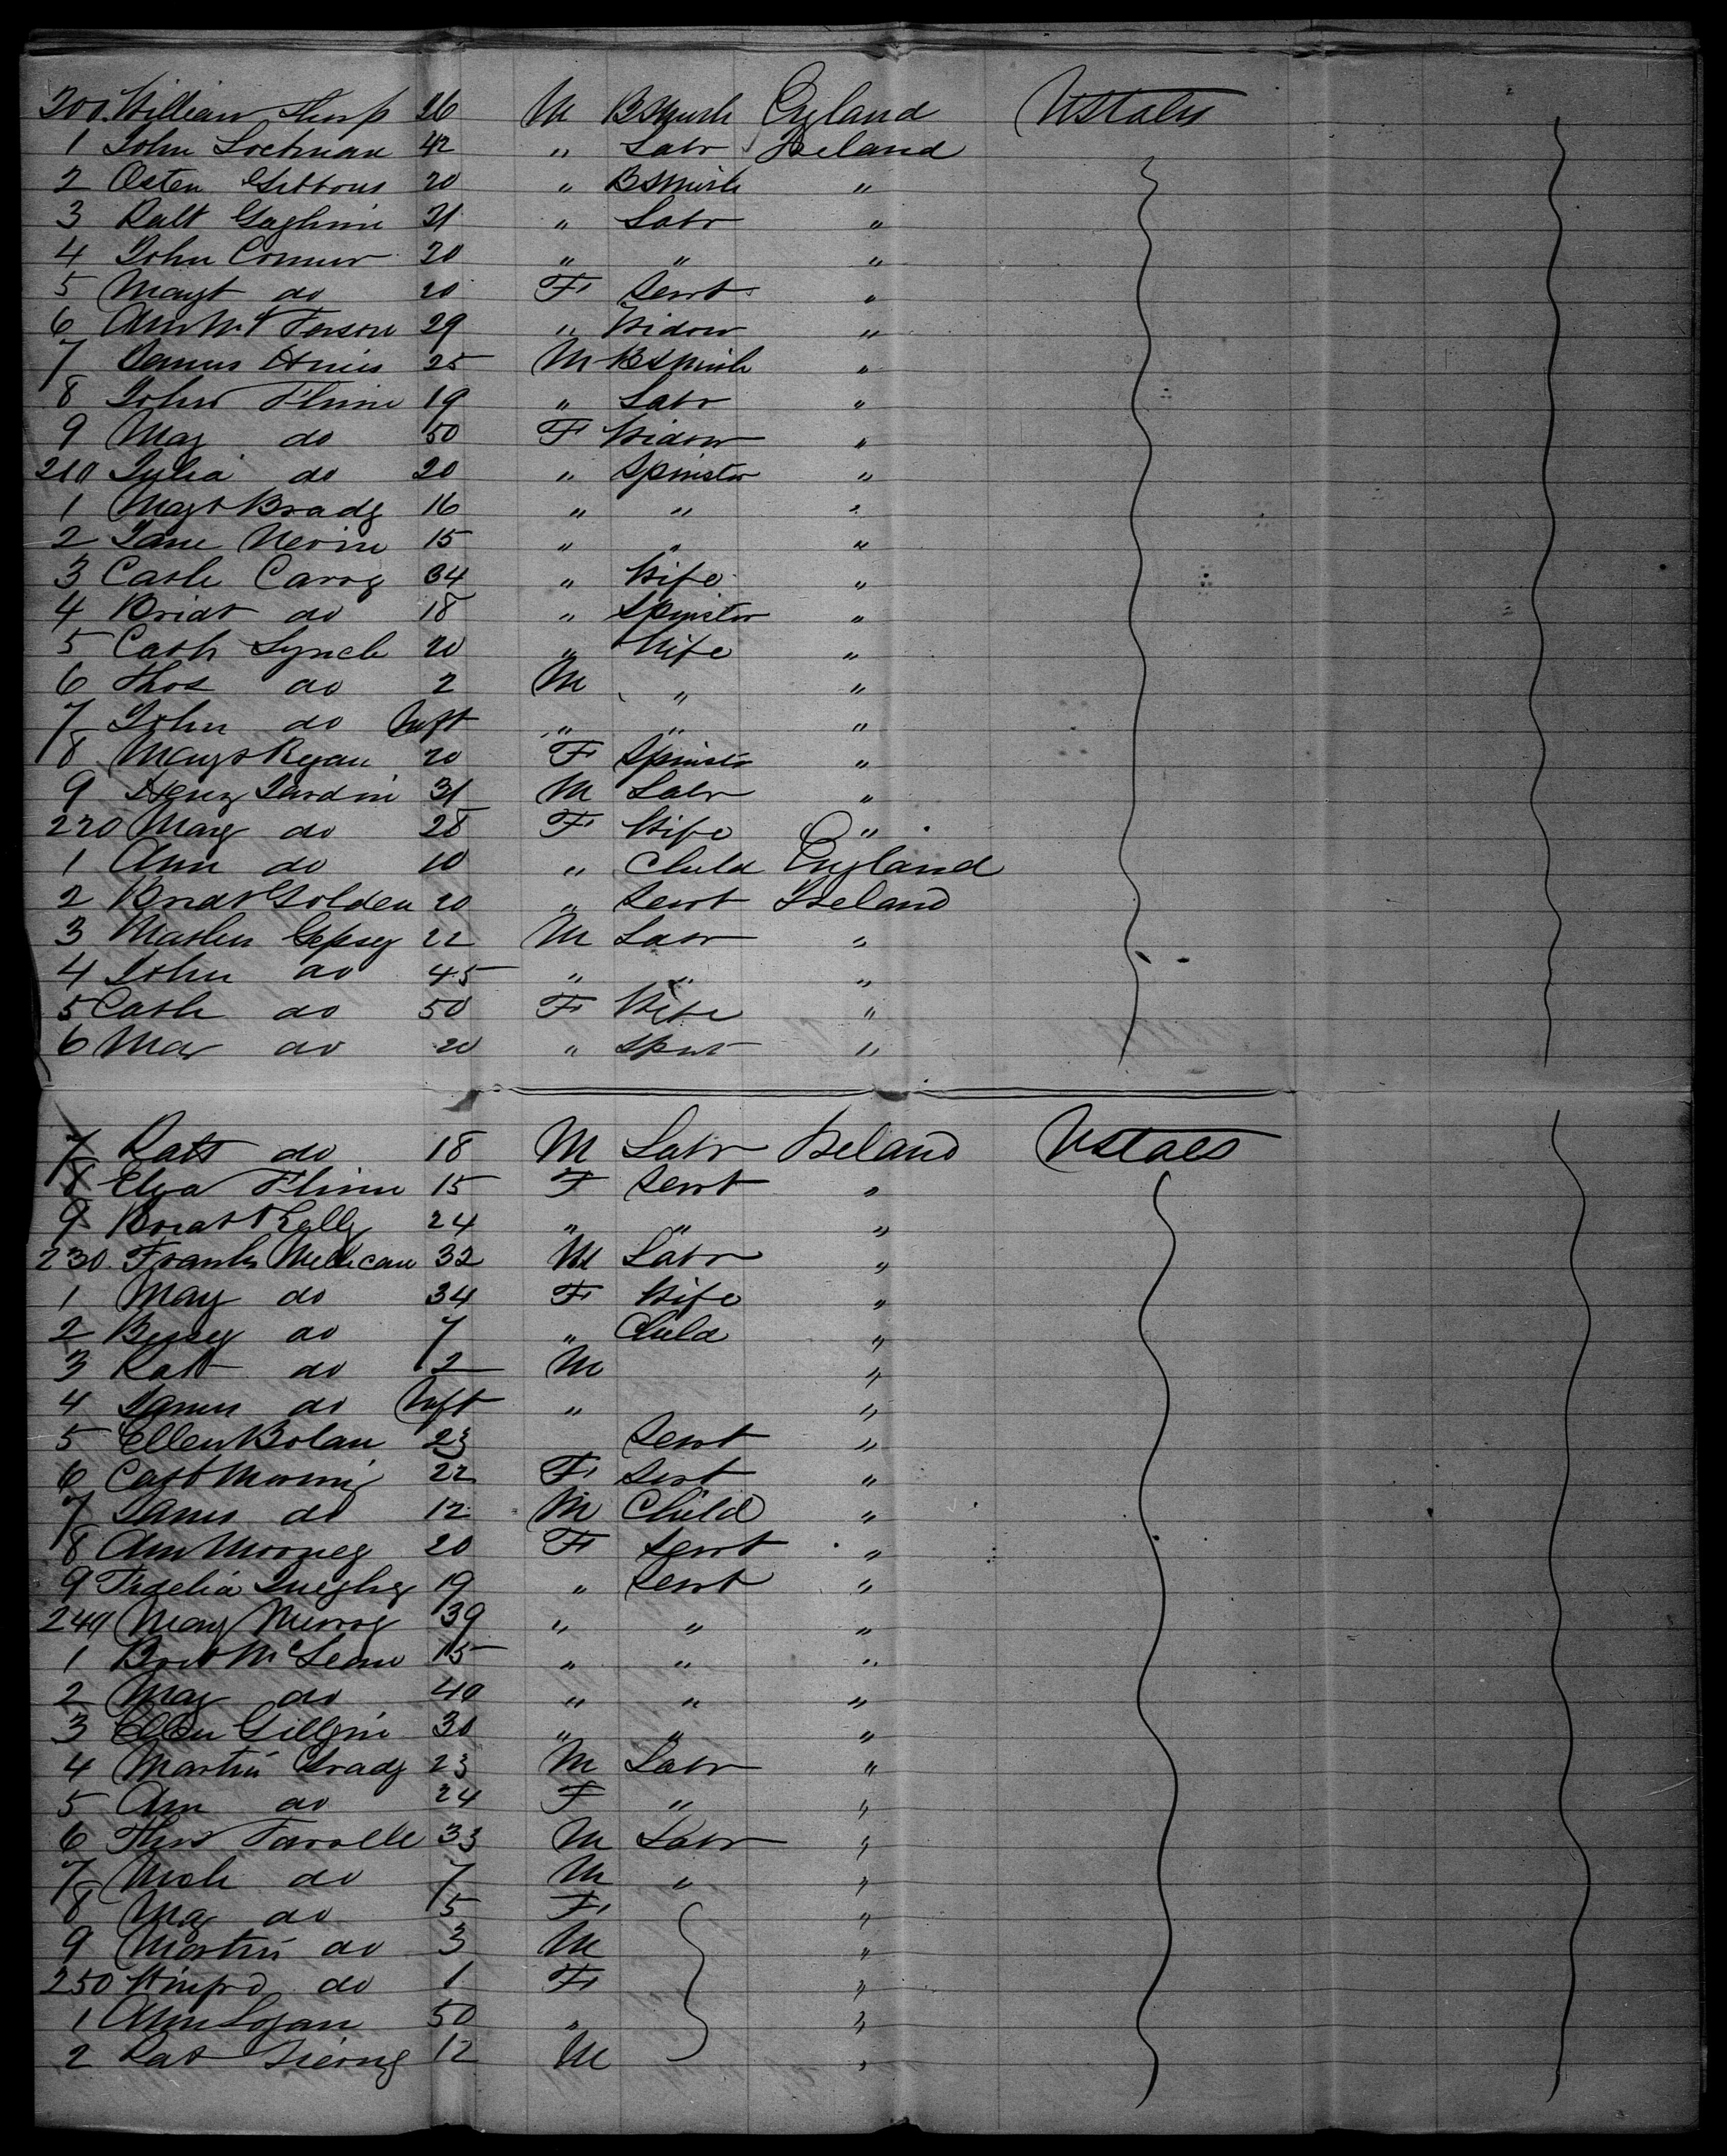 200. William Sharp 26 M BSmith England UStates
1 John Lochnan 42 " Labr Ireland
2 Osten Gibbons 20 " BSmith "
3 Patt Gaghnin 21 " Labr "
4 John Conner 20 " " "
5 Magt do 20 F Servt "
6 Ann Mc Ferson 29 " Widow "
7 James 25 M BSmith "
8 John Flinn 19 " Labr "
9 May do 50 F Widow "
210 Julia do 20 " Spinster "
1 Magt Brady 16 " " "
2 Jane Nevin 15 " " "
3 Cath Carrog 34 " Wife "
4 Bridt do 18 " Spinster "
5 Cath Lynch 20 " Wife "
6 Thos do 2 M " "
7 John do Inft " " "
8 Magt Regan 20 F Spinstr "
9 Henry Jardin 31 M Labr "
220 Mary do 28 F Wife "
1 Ann do 10 " Child England
2 Bridt Golden 20 " Servt Ireland
3 Mathew Gepsey 22 M Labr "
4 John do 45 " " "
5 Cath do 50 F Wife "
6 Mar do 20 " Spinr "
7 Patt do 18 M Labr Ireland UStaes
8 Eliza Flinn 15 F Servt "
9 Bridt Kelly 24 " " "
230. Frank Mellican 32 M Labr "
1 Mary do 34 F Wife "
2 Bessey do 7 " Child "
3 Patt do 2 M "
4 James do Inft " "
5 Ellen Bolan 23 Servt "
6 Catt 22 F Servt "
7 James do 12 M Child "
8 Ann Mooney 20 F Servt "
9 19 " Servt "
240 Mary Murray 39 " " "
1 Bridt McLean 15 " " "
2 May do 40 " " "
3 Ellen Gillgin 30 " " "
4 Martin Grady 23 M Labr "
5 Ann do 24 F " "
6 Thos Farrelle 33 M Labr "
7 Mich do 7 M " "
8 May do 5 F "
9 Martin do 3 M "
250 Winfrd do 1 F "
1 Ann Logan 50 " "
2 Pat Tierny 12 M "